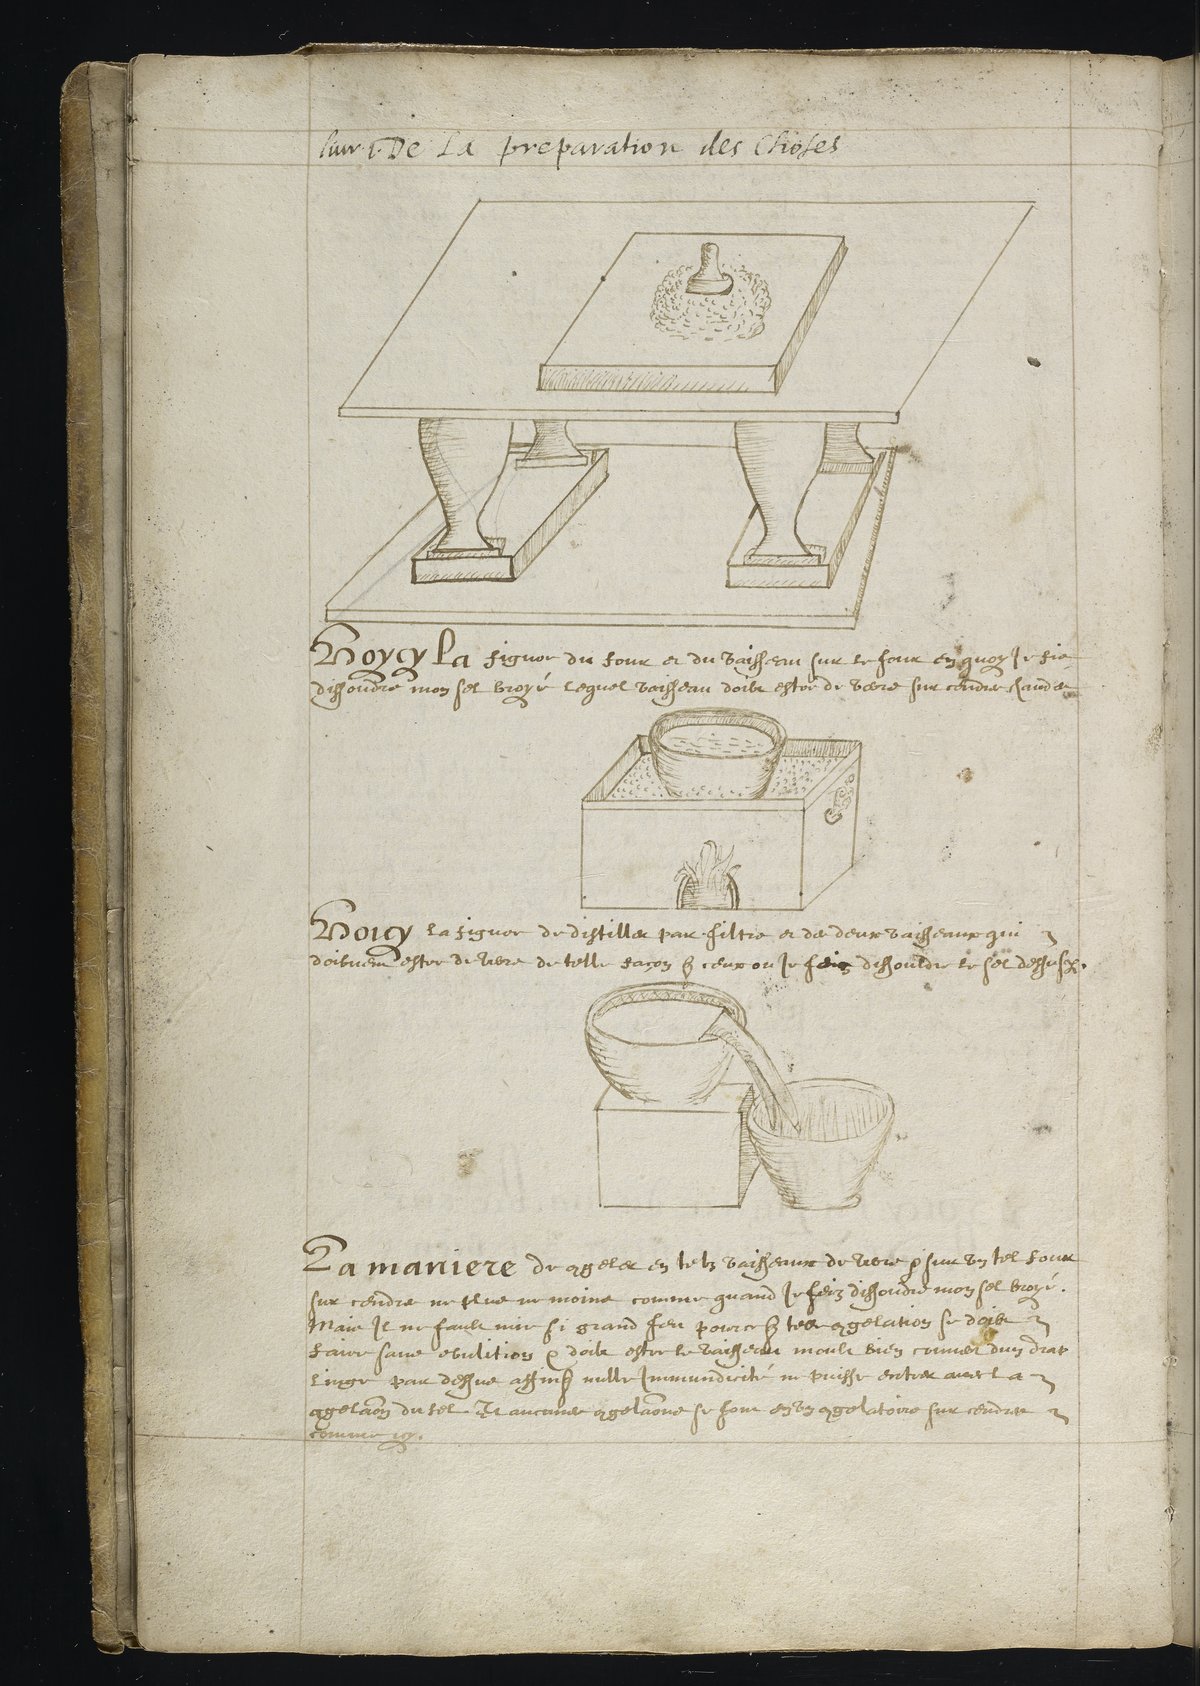 Liur. 1. De La preparation des Choses
Voycy La figure du four et du vaisseau sur le four en quoy Je fis
dissoudre mon sel broyé lequel vaisseau doibt estre de verre sur cendres chaudes
Voicy la figure de distiller par filtre et de deux vaisseaux qui
doibuent estre de verre de telle façon q̃ ceux ou Je feiz dissouldre le sel dessusd.
La maniere de 9geler en telz vaisseaux de verre sur vn tel four
sur cendres ne plus ne moins comme quand Je feiz dissoudre mon sel broyé.
Mais Il ne fault mie si grand feu pource q̃ telle 9gelation se doibt
faire sans ebulition & doibt estre le vaisseau moult bien couuert dun drap
linge par dessus affin q̃ nulle Immundicité ne puisse entrer auec la
9gelaõn du sel Et aucunes 9gelaõns se font en vn 9gelatoire sur cendres
comme icy.